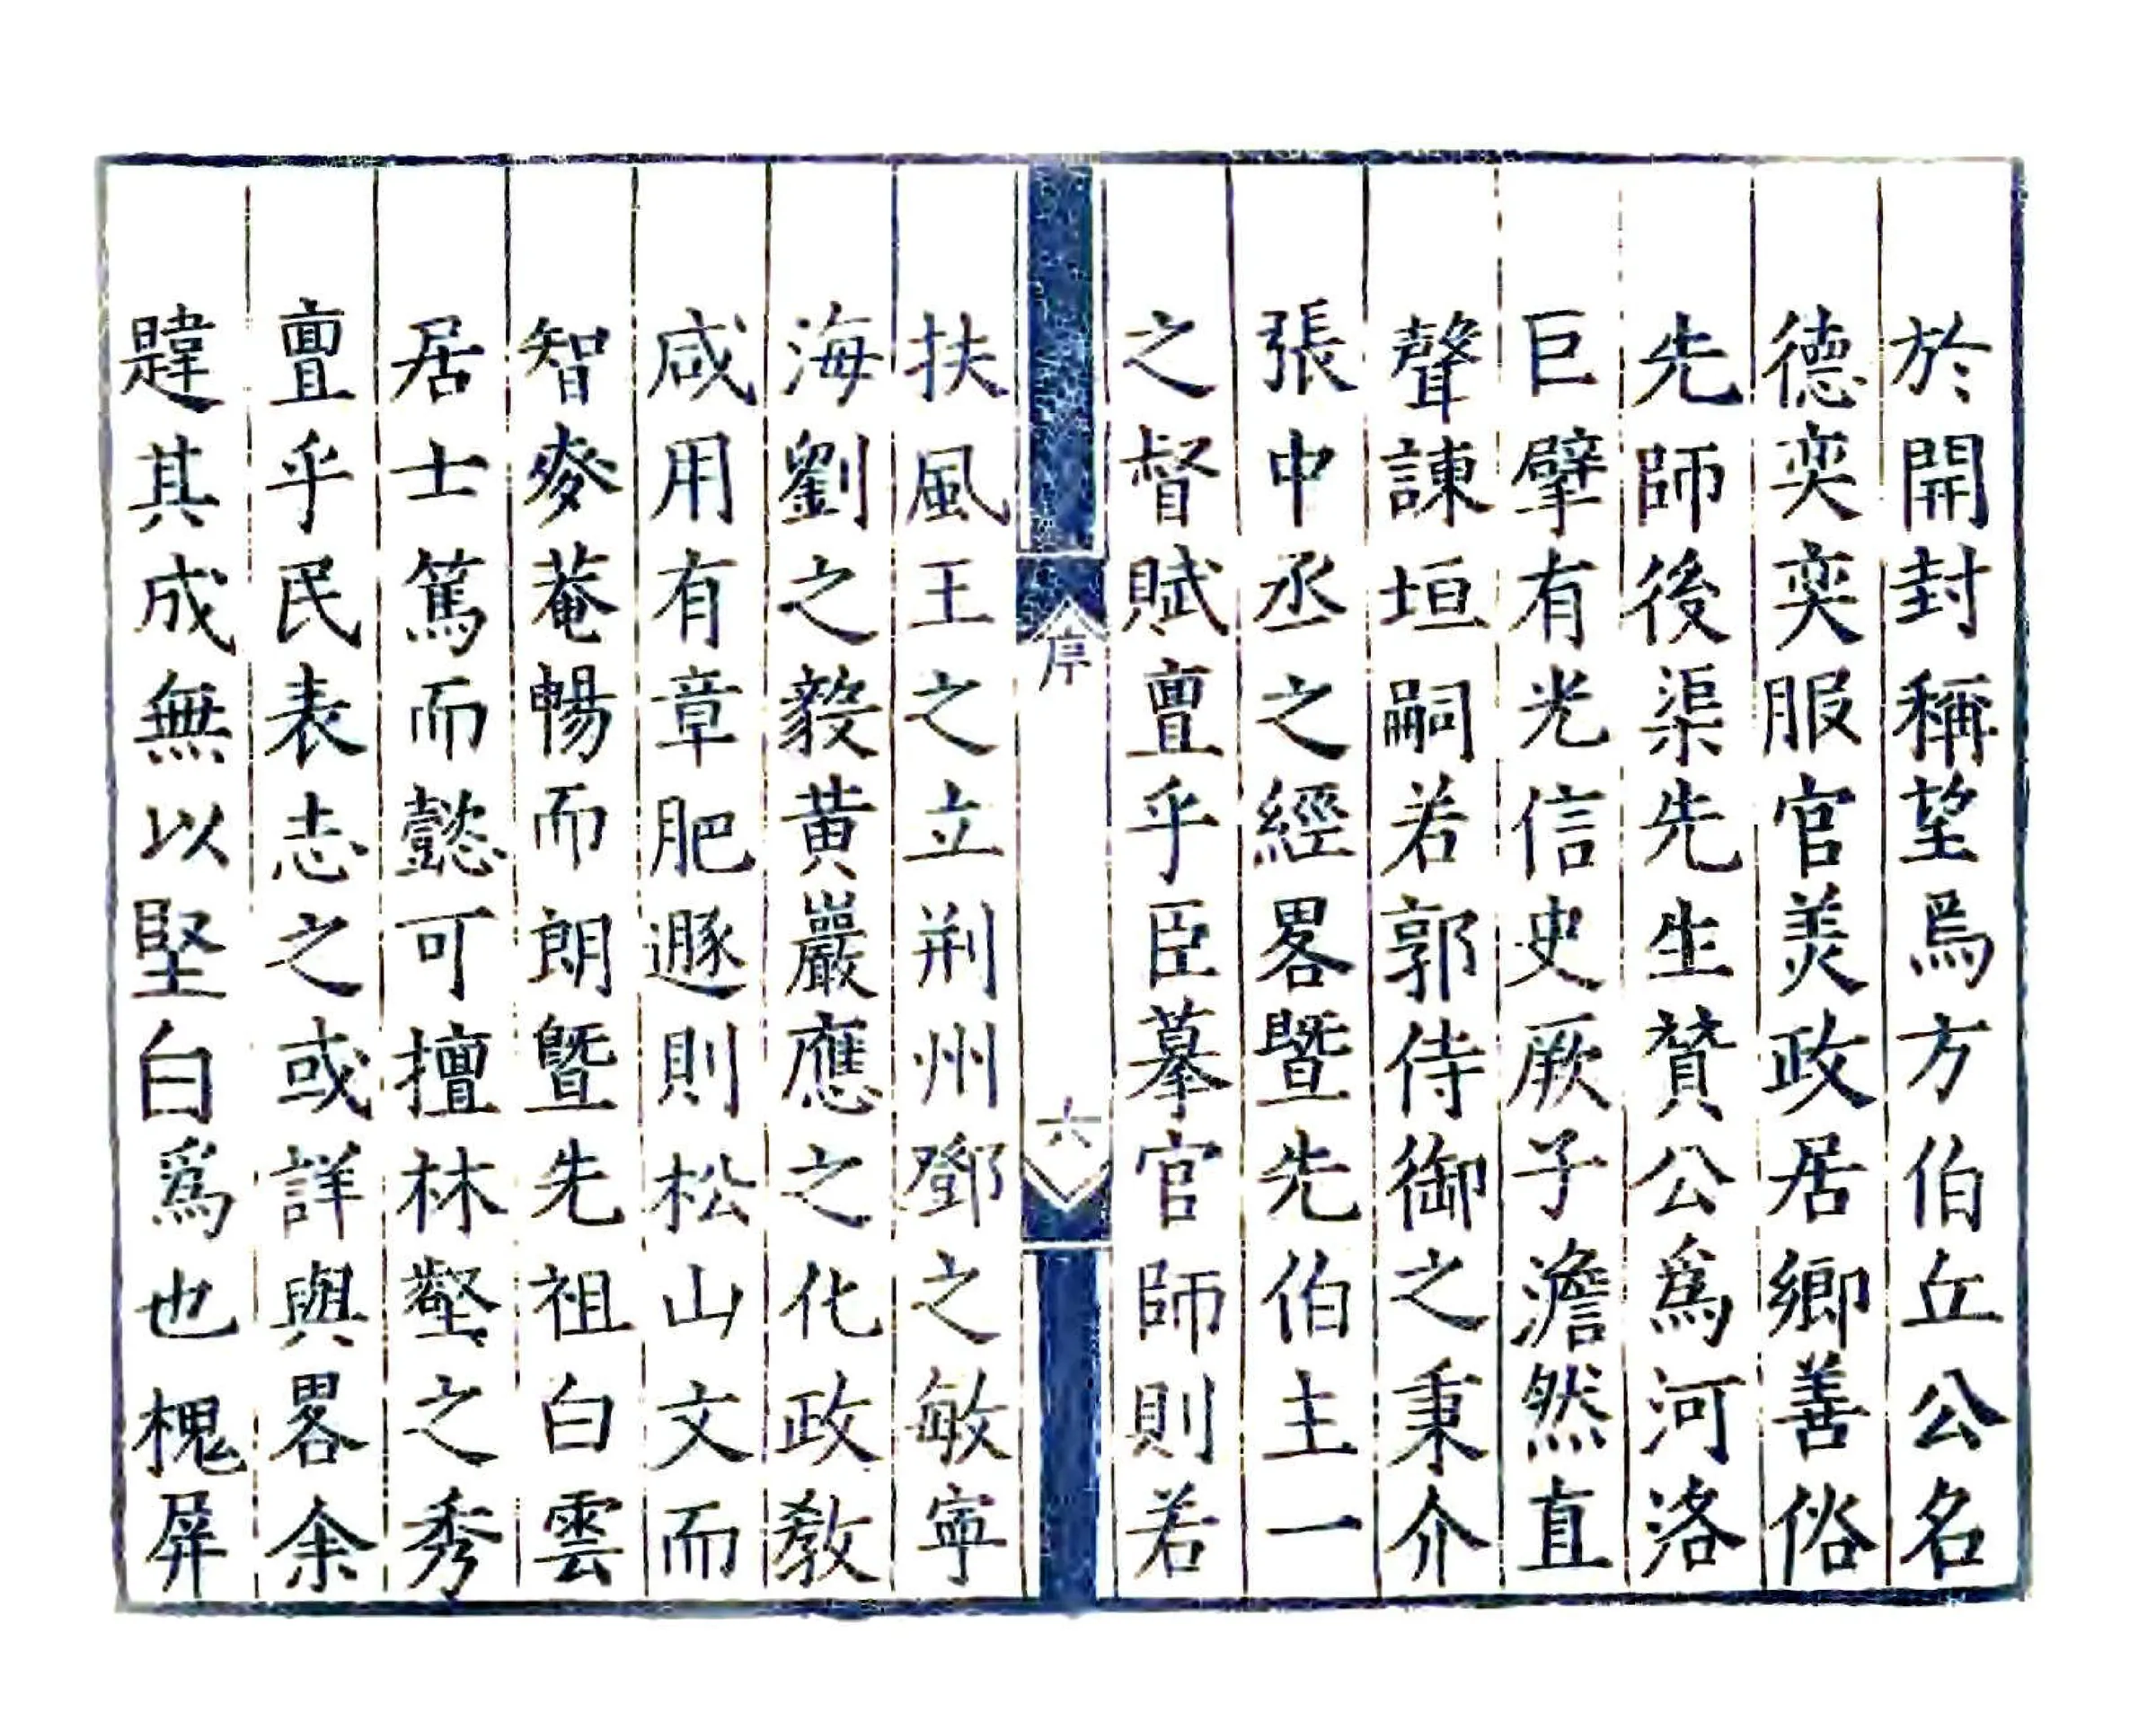 於開封稱望焉方伯丘公名
德奕奕服官羙政居鄉善俗
先師後渠先生贊公爲河洛
巨擘有光信史厥子澹然直
聲諫垣嗣若郭侍御之秉介
張中丞之經畧暨先伯主一
之督賦亶乎臣摹官師則若
序
六
扶風王之立荆州鄧之敏寧
海劉之毅黄巖應之化政敎
咸用有章肥遯則松山文而
智麥菴暢而朗暨先祖白雲
居士篤而懿可擅林壑之秀
亶乎民表志之或詳與畧余
韙其成無以堅白爲也槐屏